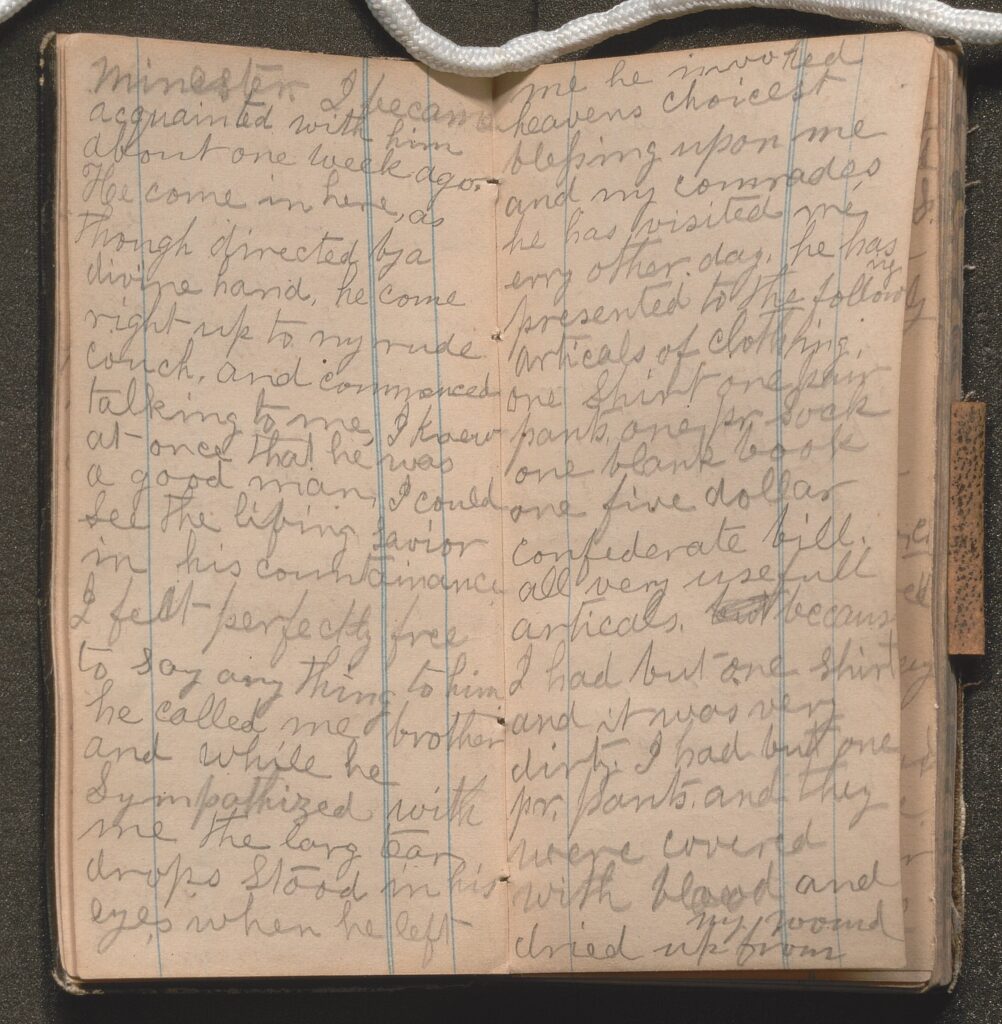 Minester I became
acquainted with him
about one week ago.
He come in here, as
though directed by a
divine hand, he come
right up to my rude
couch, and commenced
talking to me, I knew
at once that he was
a good man, I could
see the lifing savior
in his countainance
I felt perfectly free
to say any thing to him
he called me brother
and while he
Sympathized with
me the larg tear
drops stood in his
eyes, when he left
me he invoked
heavens choicest
blessing upon me
and my comrades,
he has visited me
erry other day, he has
presented to the following
articals of clothing,
one Shirt one pair
pants, one pr. sock
one blank book
one five dollar
confederate bill.
all very usefull
articals. but because
I had but one shirt
and it was very
dirty. I had but one
pr. pants. and they
were covered
with blood and
dried up from my wound